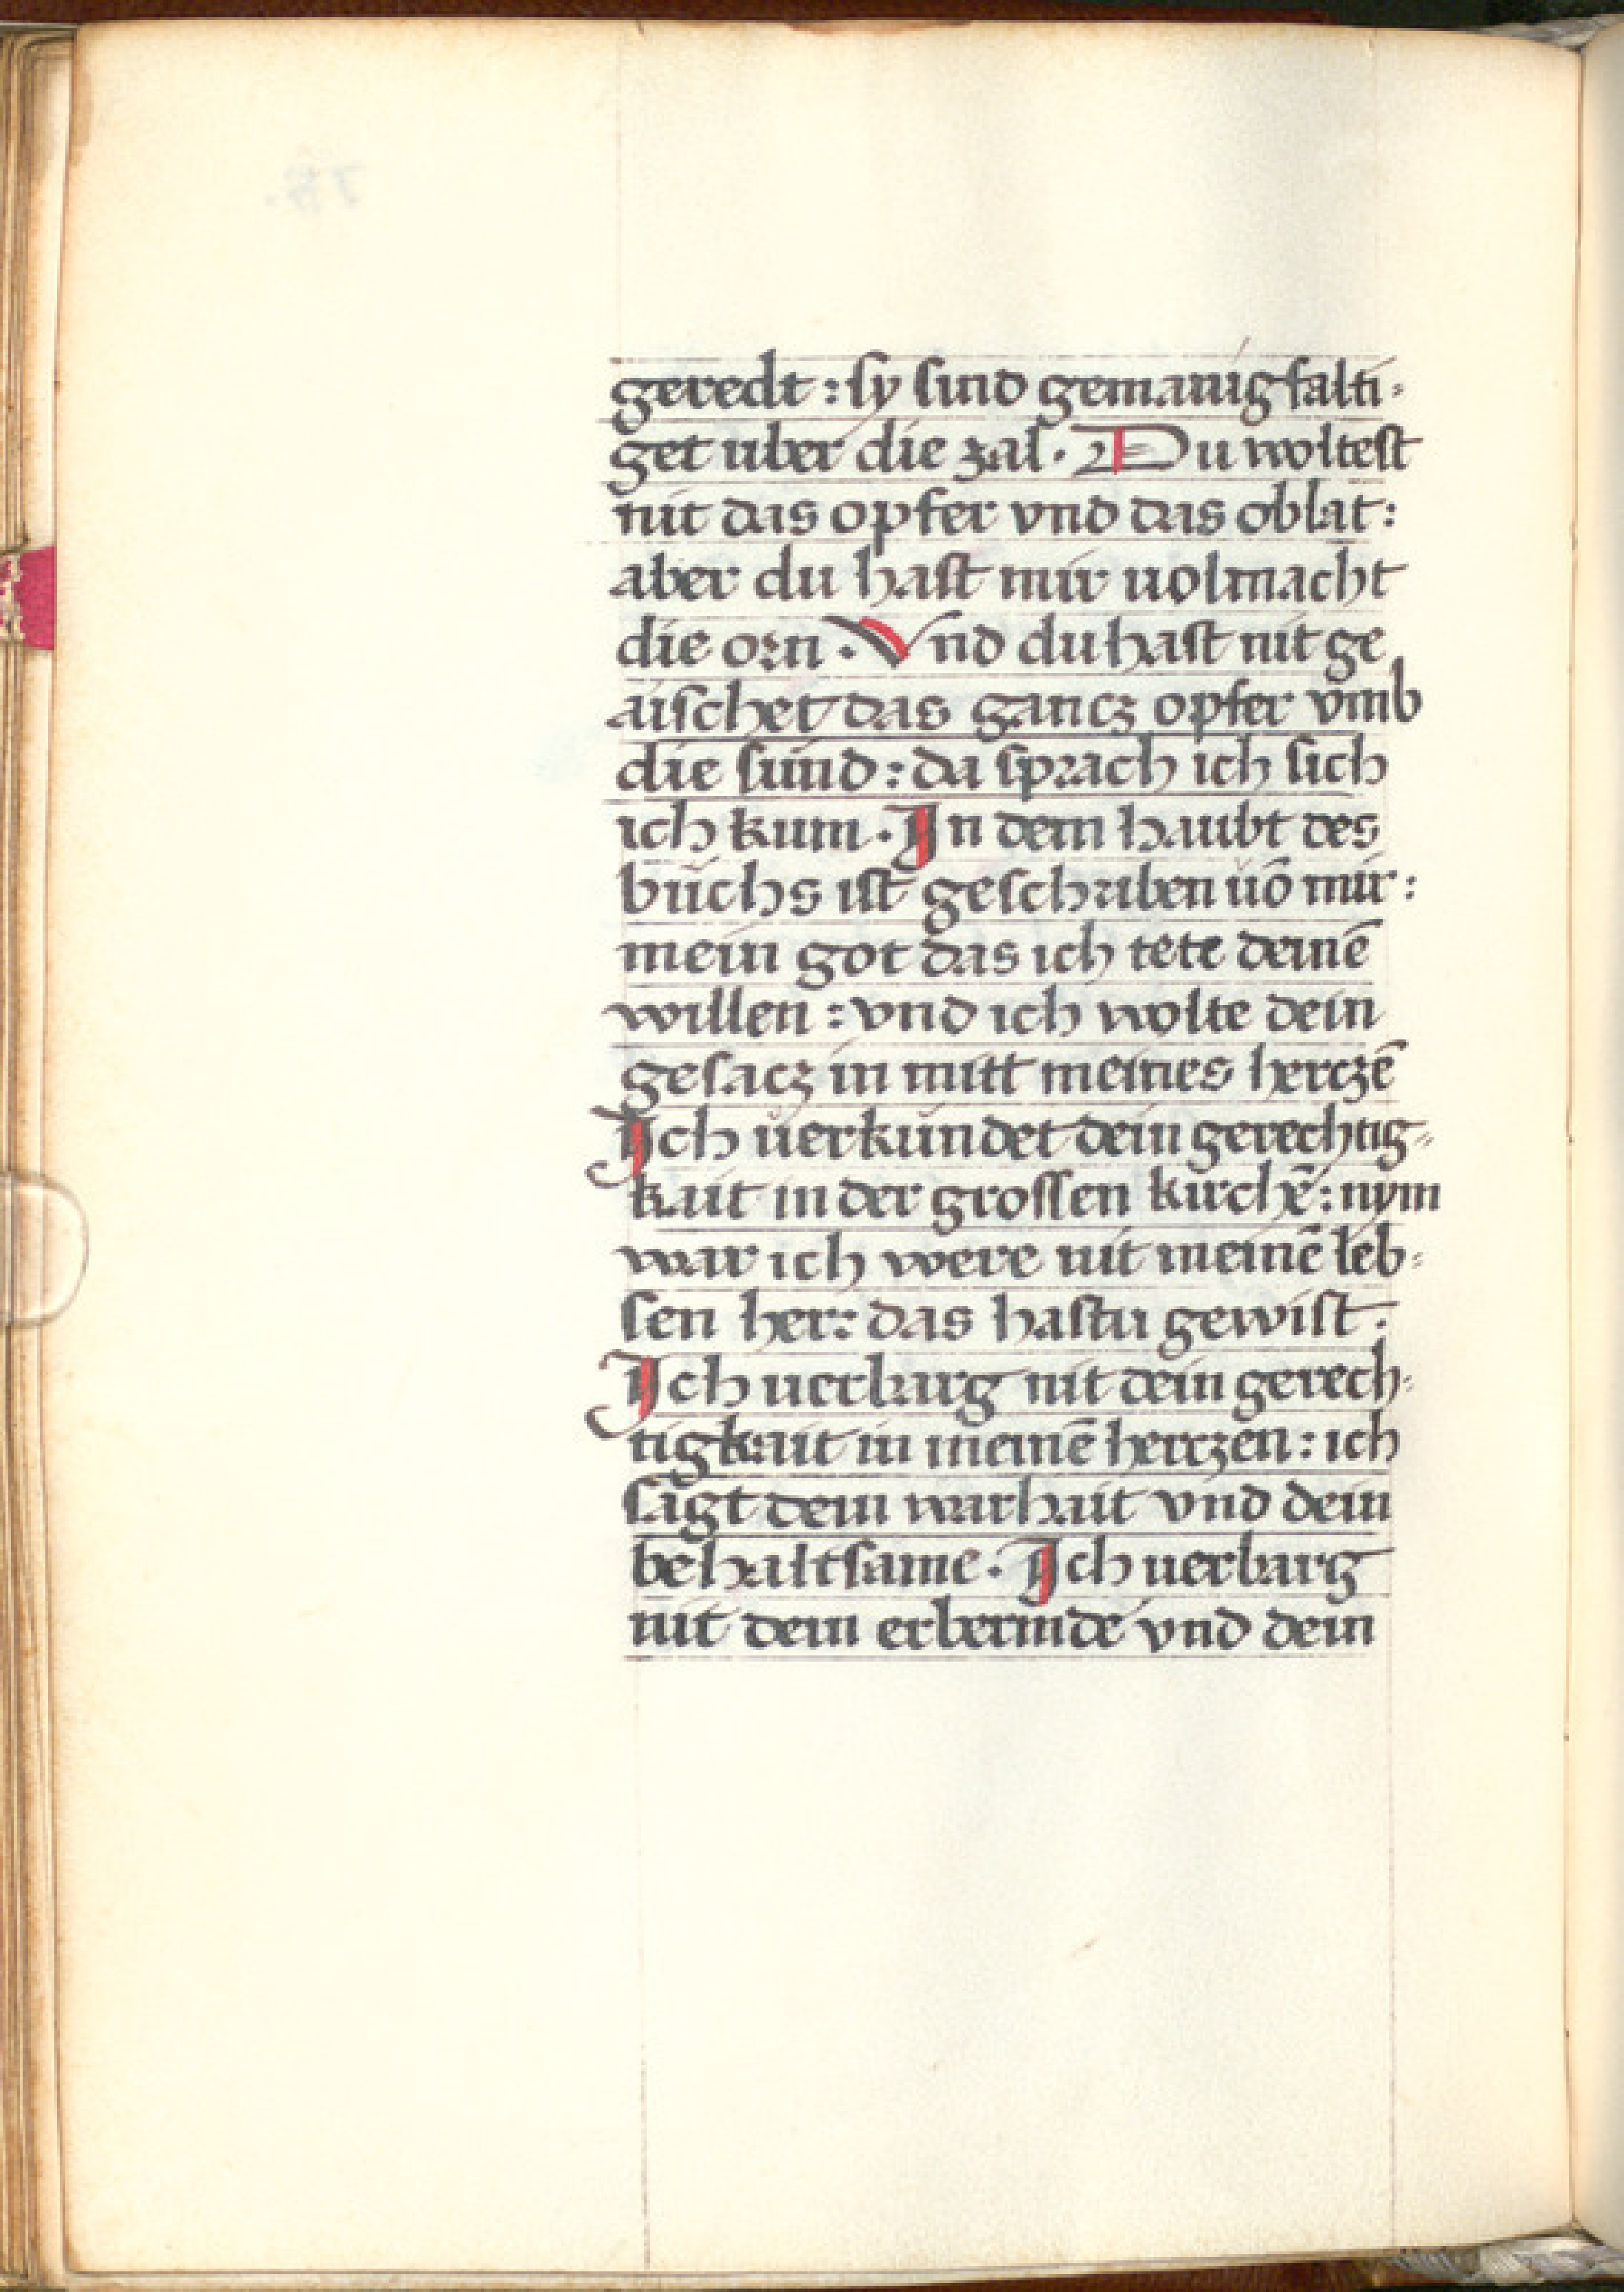 geredt : sy sind gemanigfalti-
get uber die zal · Du woltest
nit das opfer vnd das oblat :
aber du hast mir uolmacht
die orn · Vnd du hast nit ge
aischet das gancz opfer vmb
die sünd : da sprach ich sich
ich kum · In dem haubt des
bůchs ist geschriben uō mir :
mein got das ich tete deinē
willen : vnd ich wolte dein
gesacz in mitt meines herczē
Ich uerkündet dein gerechtig-
kait in der grossen kirchē : nym
war ich were nit meinē leb-
sen her : das hastu gewist ·
Ich uerbarg nit dein gerech-
tigkait in meinē herczen : ich
sagt dein warhait vnd dein
behaltsame · Ich uerbarg
nit dein erbermde vnd dein